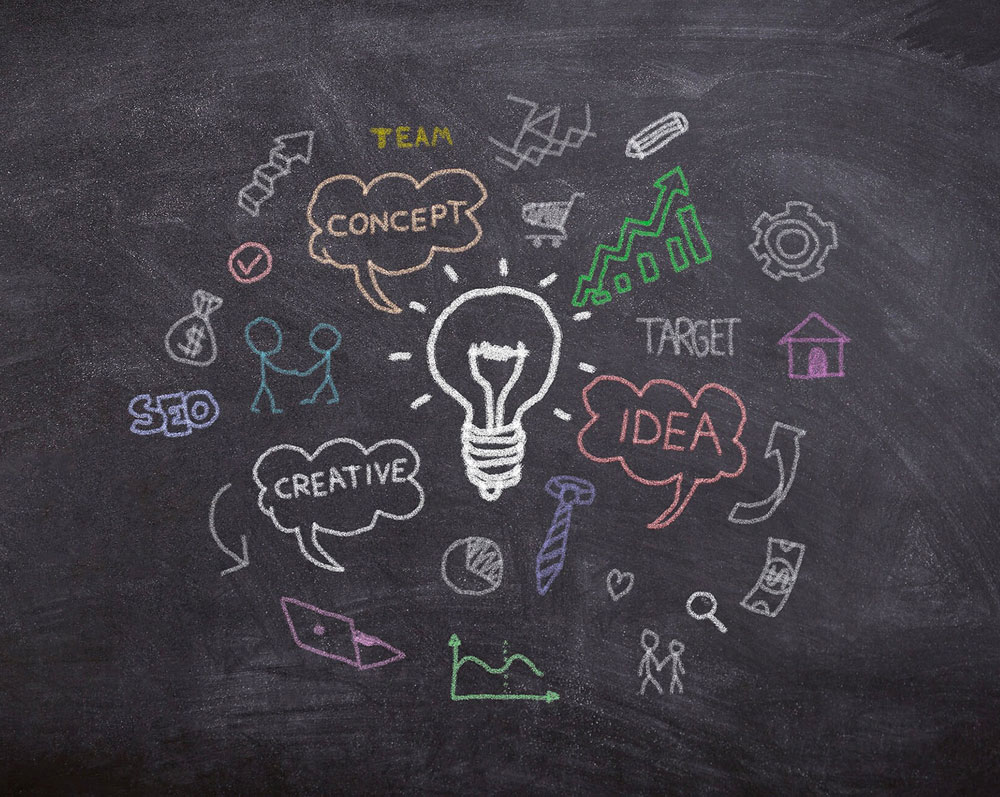 TEAM
CONCEPT
$
TARGET
SEO
IDEA
CREATIVE
$